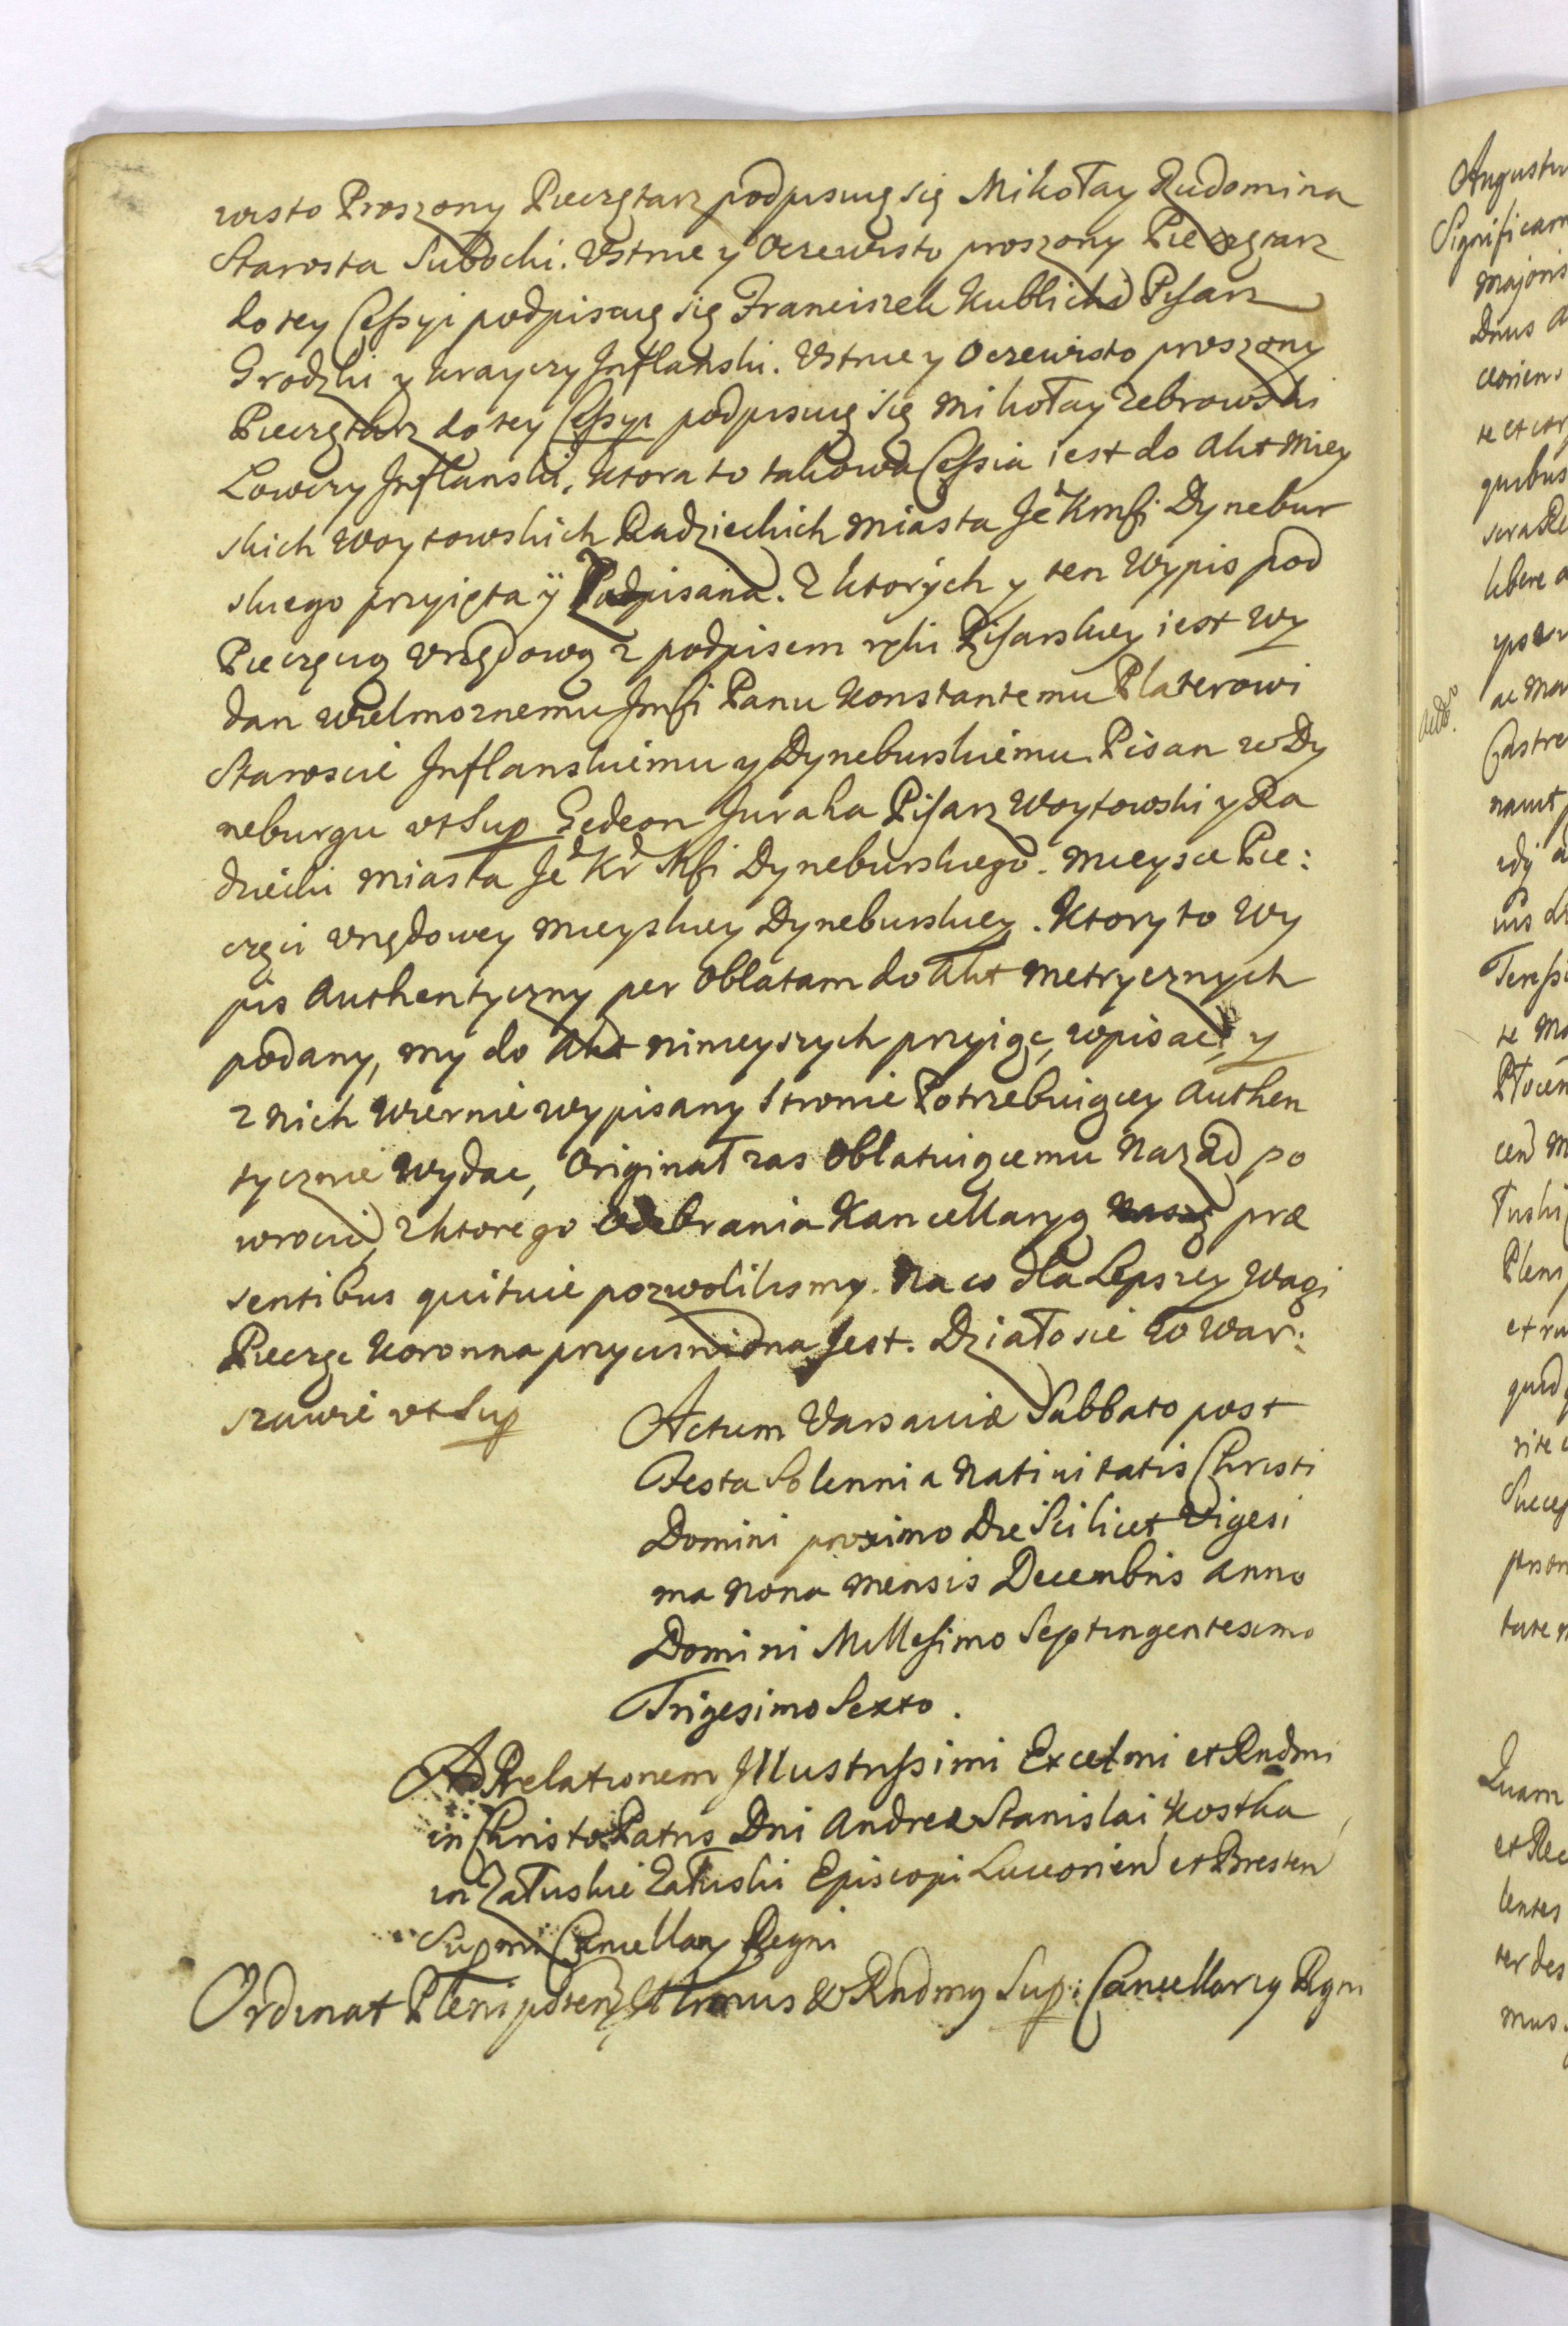 wisto Proszony Pieczętarz podpisuię się Mikołay Rudomina
Starosta Subocki. Vstnie y Oczewisto proszony Pieczętarz
do tey Cessyi podpisuię się Franciszek Kublicki Pisarz
Grodzki y Krayczy Inflanski. Vstnie y Oczewisto proszony
Pieczętarz do tey Cessyi podpisuię się Mikołay Zebrowski
Łowczy Inflanski, Ktora to takowa Cessia iest do Akt Miey
skich Woytowskich Radzieckich Miasta Je Kmsi Dynebur
skiego przyięta y Podpisana. Z ktorych y ten Wypis pod
Pieczęcią Vrzędową z podpisem ręki Pisarskiey iest Wy
dan Wielmoznemu Jmsi Panu Konstantemu Platerowi
Staroscie Inflanskiemu y Dyneburskiemu. Pisan w Dy
neburgu vt Sup Gedeon Juraha Pisarz Woytowski y Ra
dziecki Miasta Je Kr Msi Dyneburskiego. Mieysce Pie:
częci Vrzędowey Mieyskiey Dyneburskiey. Ktory to Wy
pis Authentyczny per Oblatam do Akt Metrycznych
podany, my do Akt Ninieyszych przyiąc, wpisac, y
z Nich Wiernie wypisany Stronie Potrzebuiącey Authen
tycznie Wydac, Originał zas Oblatuiącemu Nazad po
wrocic, z ktorego Odebrania Kancellaryą Naszą præ
sentibus quituie pozwolilismy. Na co dla Lepszey Wagi
Pieczęc Koronna przycisniona Jest. Działo sie w War:
szawie vt Sup
Actum Varsaviæ Sabbato post
Festa Solennia Nativitatis Christi
Domini proximo Die Scilicet Vigesi
ma Nona Mensis Decembris Anno
Domini Millesimo Septingentesimo
Trigesimo Sexto.
Ad Relationem Illustrissimi Excellmi et Rndmi
in Christo Patris Dni Andreæ Stanislai Kostka
in Załuskie Załuski Episcopi Luceorien et Bresten
Supmi Cancellary Regni
Ordinat Plenipoten Illmus & Rndmg Sup: Cancellarig Rgni
Augustu
Significam
Majoris
Dnus
te et
quibus
libere
ac
Castre
namt
Tenss
te
Tuski
Pleni
et
quid
rite
Succes
ture
Quam
et Rec
lentes
ter des
mus.